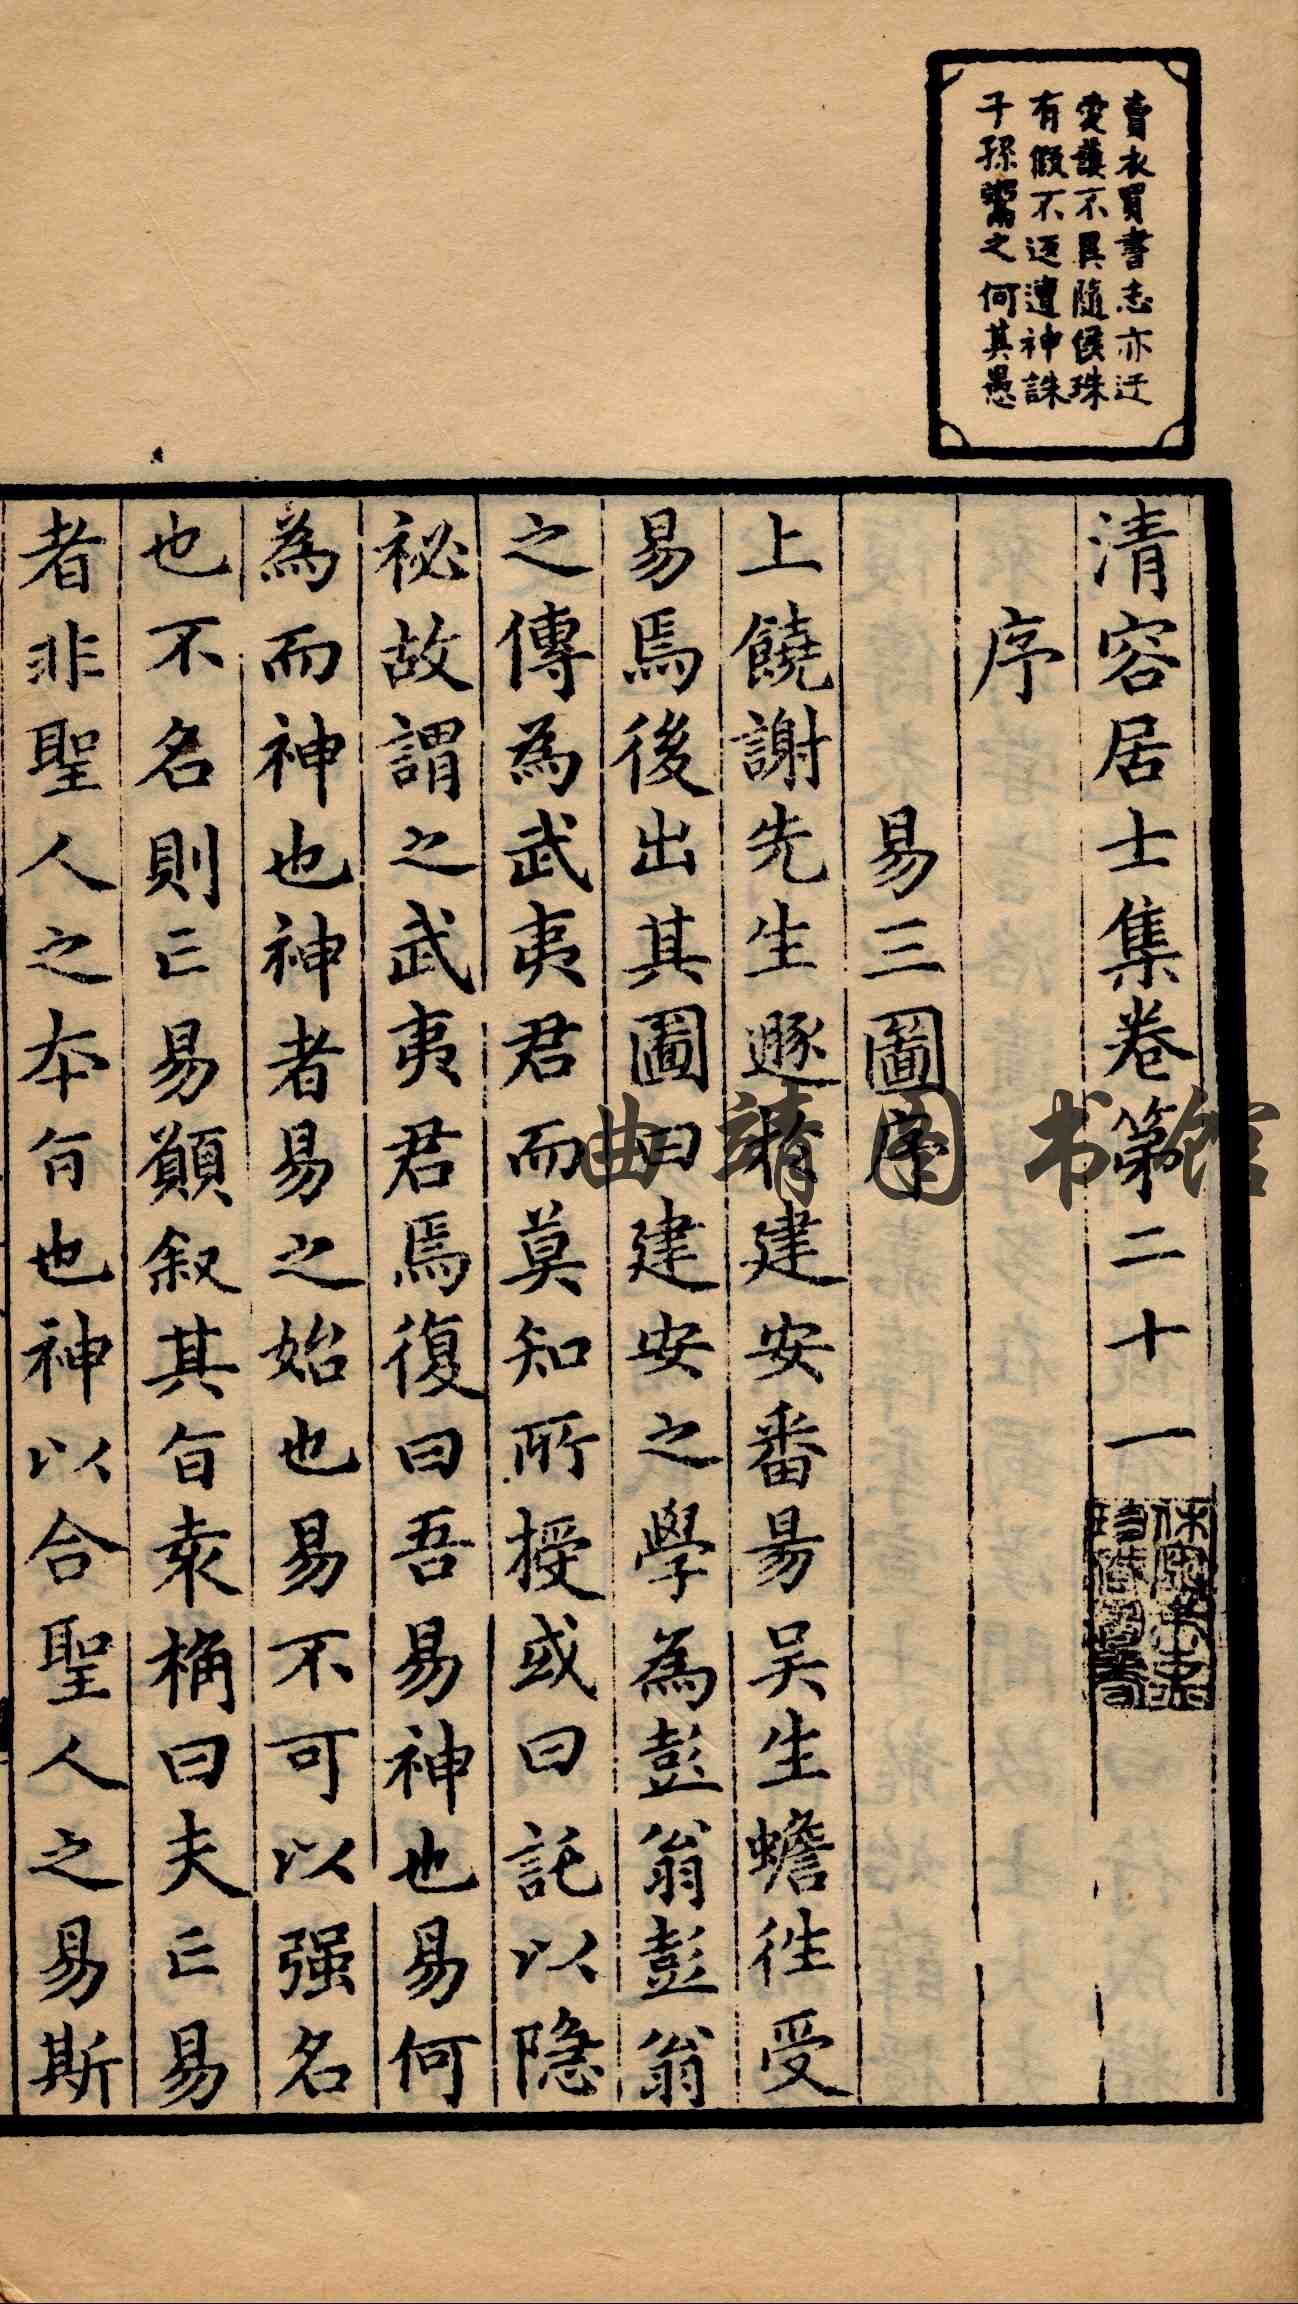 賣衣買書志亦迂
愛護不異隨侯珠
有假不返遭神誅
子孫鬻之何其愚
清容居士集卷第二十一
序
易三圖序
上饒謝先生遯於建安番昜吴生蟾徃受
易焉後出其圖曰建安之學為彭翁彭翁
之傳為武夷君而莫知所授或曰託以隠
祕故謂之武夷君焉復曰吾易神也易何
為而神也神者易之始也易不可以强名
也不名則亡易願叙其㫖𡊮桷曰夫亡易
者非聖人之本㫖也神以合聖人之易斯
曲靖图书馆